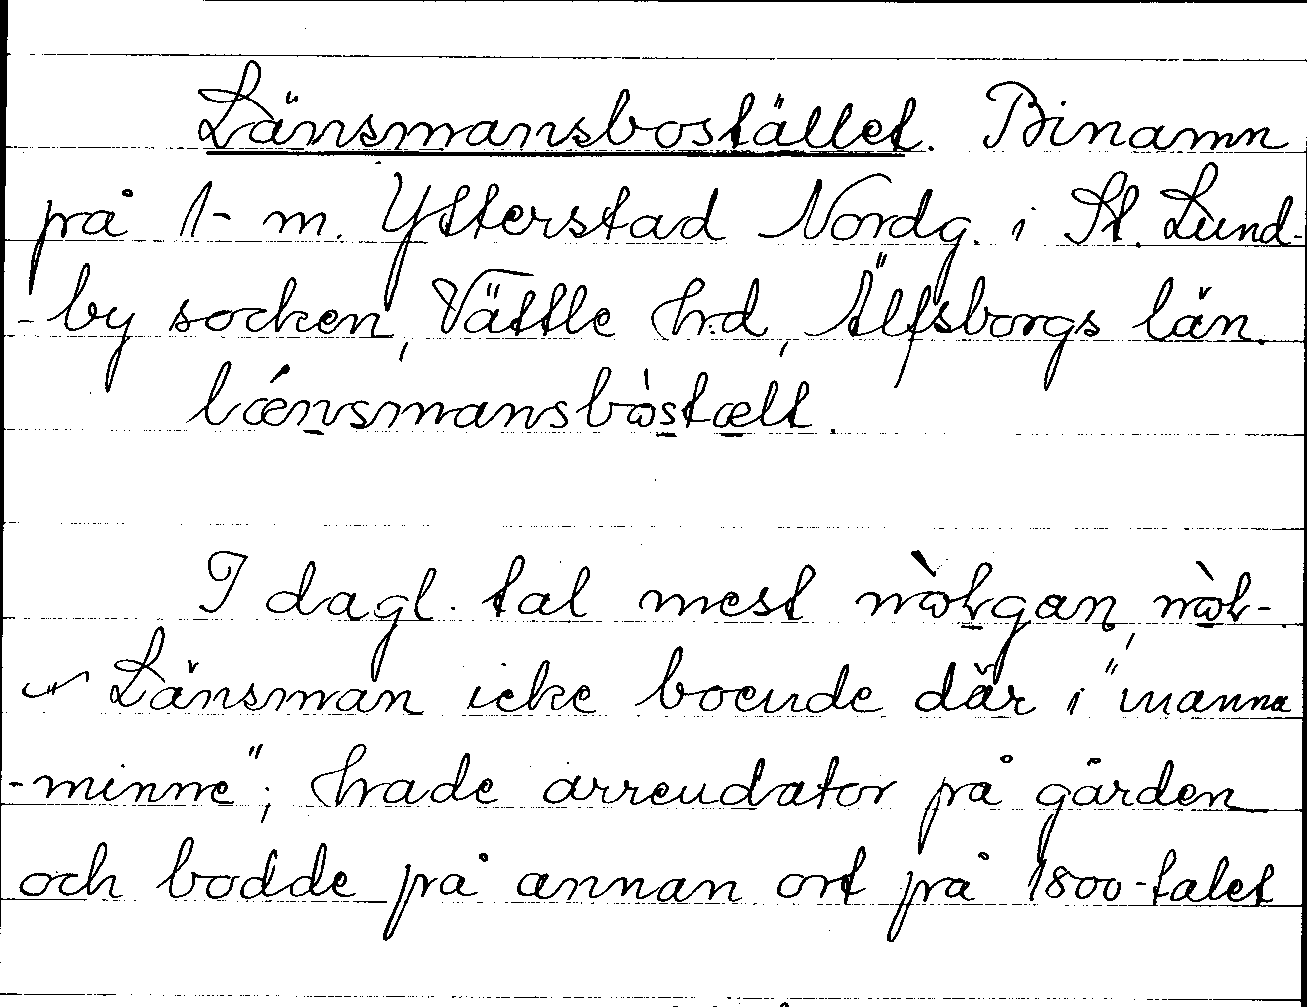 Länsmansbostället. Binamn
på 1- m. Ytterstad Nordg. i St. Lund-
-by socken, Vättle h:d, Älfsborgs län.
lǽnsmansbòstælt.

I dagl. tal mest
Länsman icke boende där i "manna
-minne"; hade arrendator på gården
och bodde på annan ort på 1800-talet